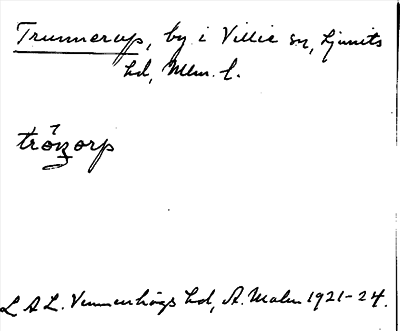 Trunnerup, by i Villie sn, Ljunits
hd, Mlm. l.
trö́nzorp
L A L. Vemmenhögs hd, A. Malm 1921-24.